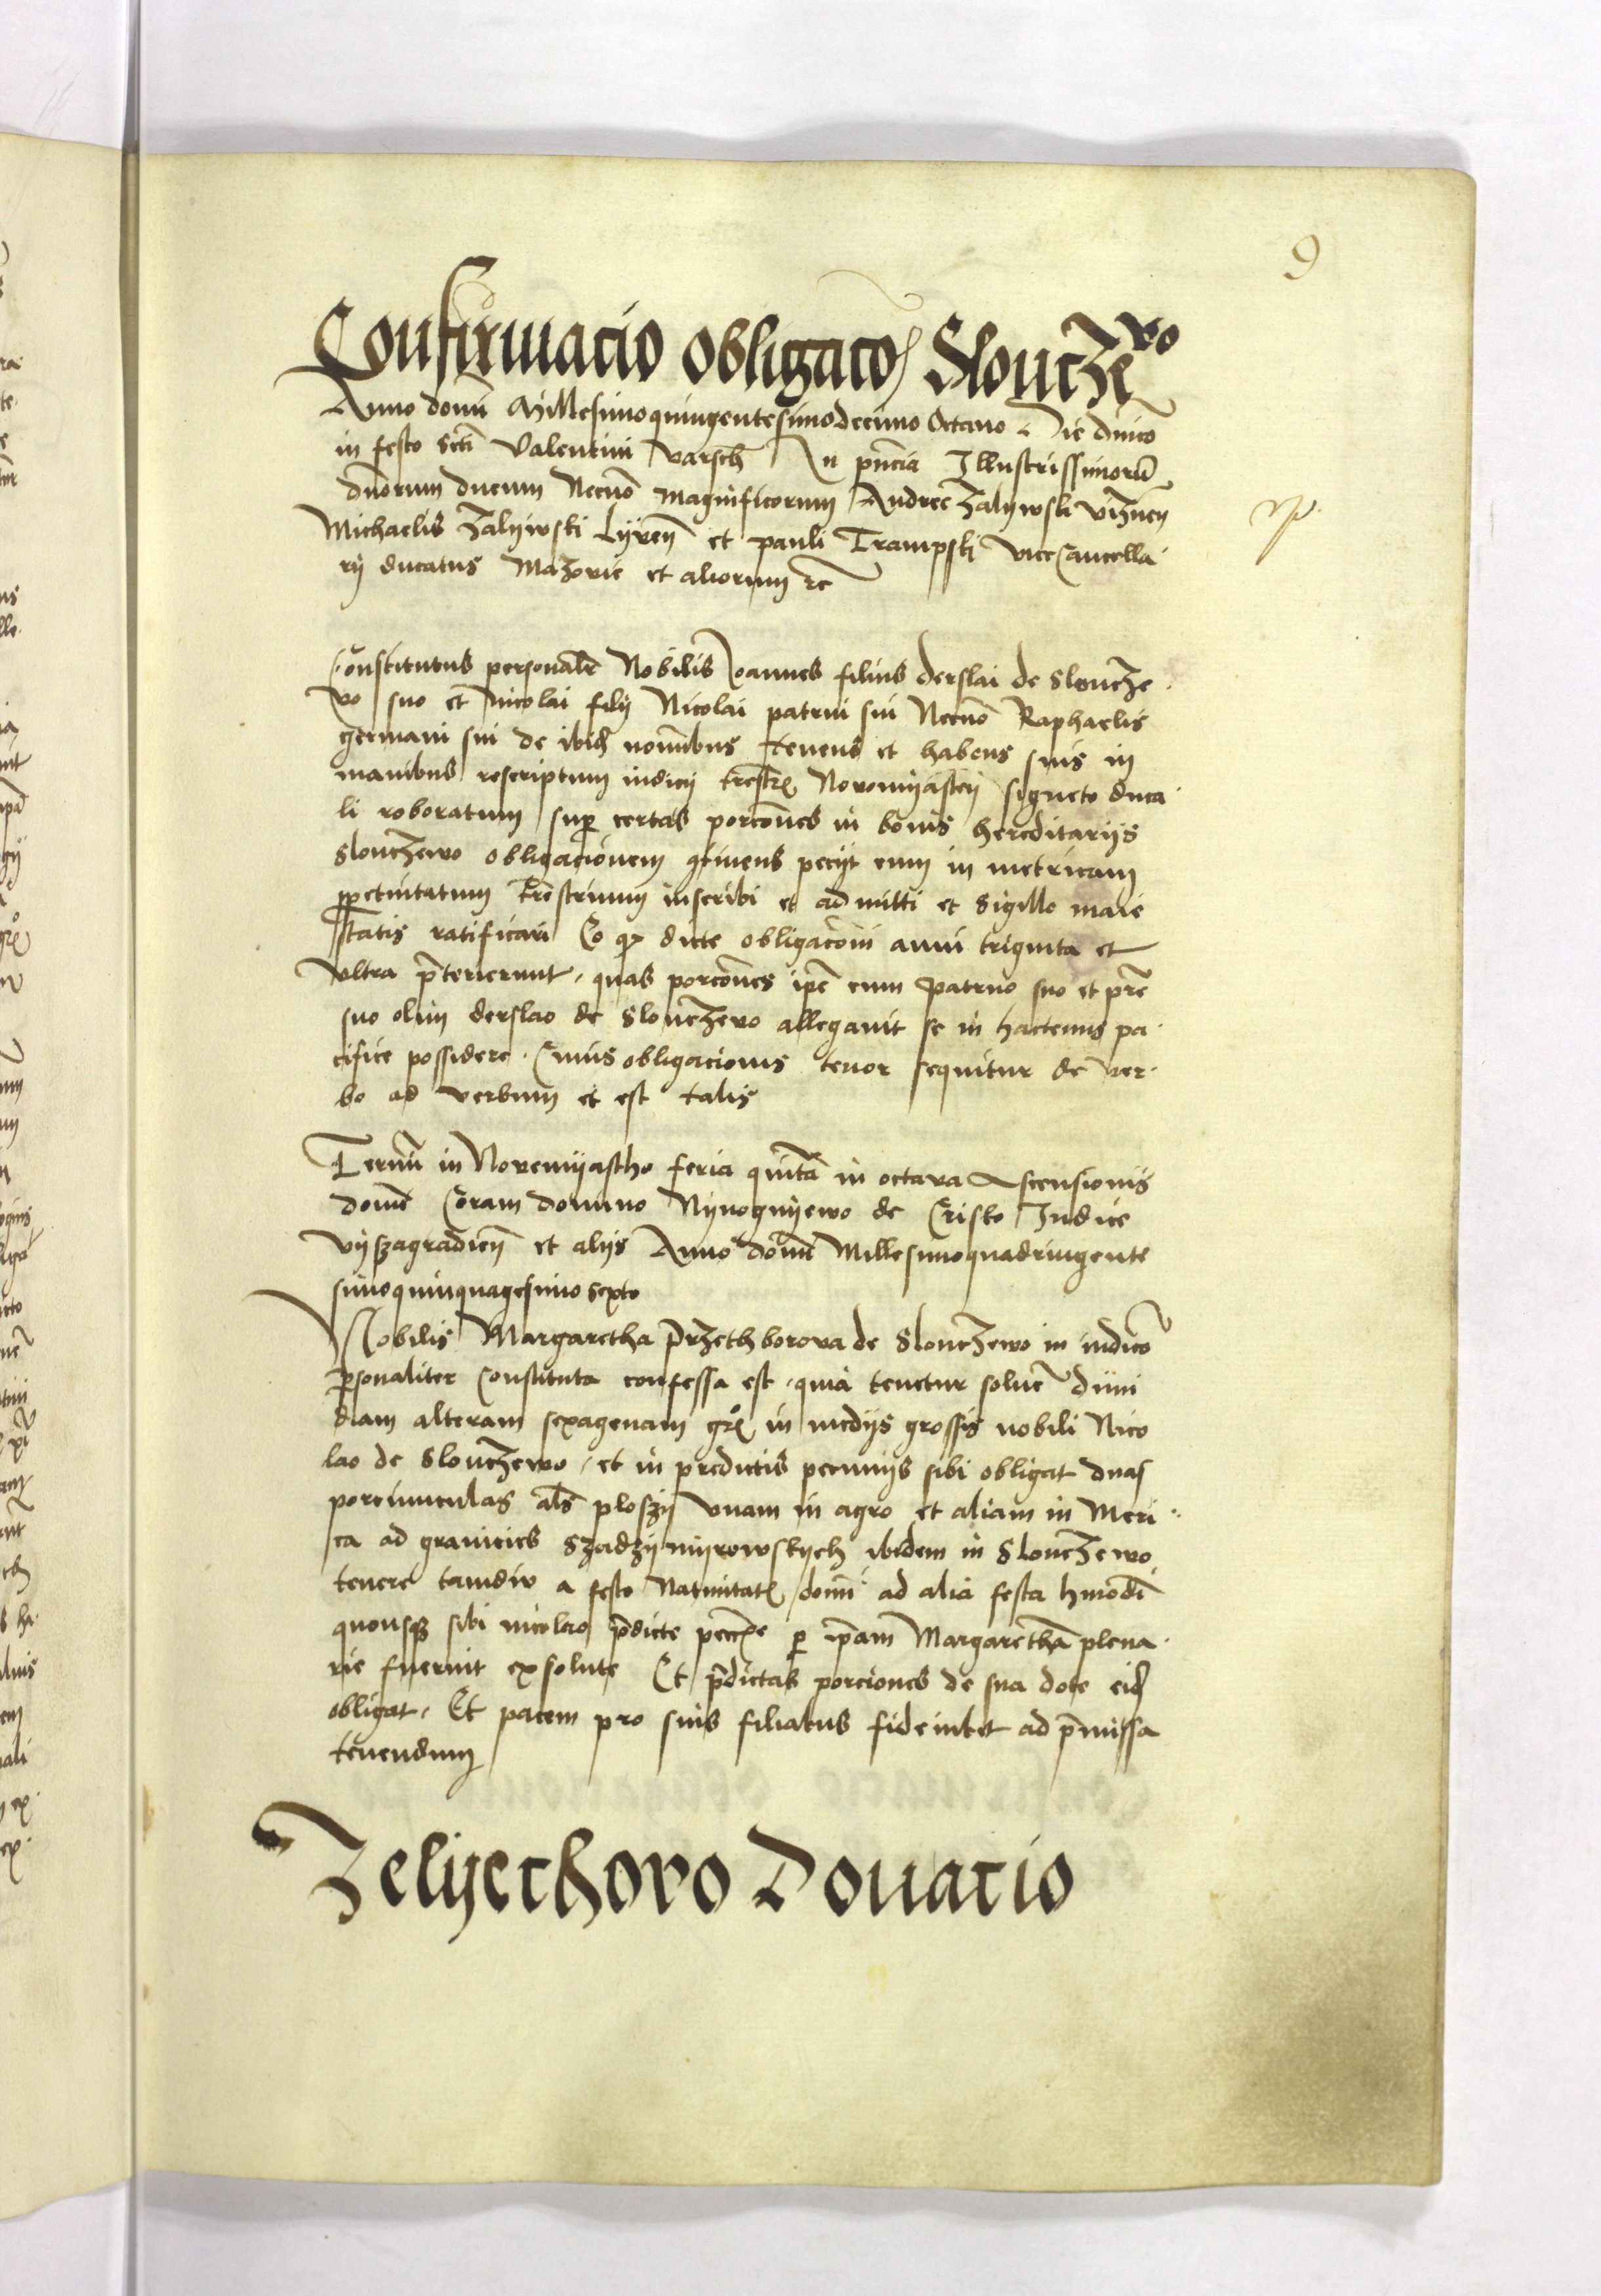 9
Confirmacio obligaco͞ Sloncze wo
Anno domi͞ Millesimoquingentesimodecimo Octavo Die dn͞ico
in festo scti͞ Valentini Varsch͞ In pn͞cia Illustrissimoru͞
dn͞orum ducum Necno͞ magnificorum Andree Zalywski viznen͞
Michaelis Zalywski Lywen͞ et pauli Trampski viceCancella
rij ducatus Mazovie et aliorum rc͞
Constitutus personalr͞ Nobilis Joannes filius derslai de Sloncze
wo suo et nicolai filij Nicolai patrui sui Necno͞ Raphaelis
germani sui de ibid͞ nomi͞bus tenens et habens suis in
manibus rescriptum iudicij trestr͞ Novomijasteÿ signeto duca
li roboratum sup͞ certas porco͞nes in bonis hereditarijs
Slonczewo obligacionem co͞tinens pecijt eum in metricam
p͞petuitatum tr͞estrium inscribi et admitti et Sigillo maie
statis ratificari Eo q͞ dicte obligaco͞ni anni triginta et
ultra p͞terierunt, quas porco͞nes ip͞e cum patruo suo et pr͞e
suo olim derslao de Slonczewo allegavit se in hactenus pa
cifice possidere. Cuius obligacionis tenor sequitur de ver
bo ad verbum et est talis
Termi͞ in Novemijastho feria quinta in octava Ascensionis
domi͞ Coram domino Nynognÿewo de Crisko Iudice
vÿszagradien͞ et alijs Anno domi͞ Millesimoquadringente
simoquinquagesimo sexto
Nobilis Margaretha Przethborova de Slonczewo in iudico͞
p͞sonaliter Constituta confessa est, quia tenetur solue͞ dimi
diam alteram sexagenam gr͞ in medijs grossis nobili Nico
lao de Slonczewo, et in predictis pecunijs sibi obligat duas
porciunculas al͞s ploszÿ unam in agro et aliam in Meri
ca ad granicies Szadzÿmÿrowskych ibidem in Slonczewo
tenere tamdiu a festo Nativitat͞ domi͞ ad alia festa hm͞odi͞
quousq͞ sibi nicolao p͞dicte pecc͞ie p͞ ip͞am Margaretha͞ plena
rie fuerint exsolute Et p͞dictas porciones de sua dote eid͞
obligat. Et pacem pro suis filiabus fideiubet ad p͞missa
tenendum
Zelyechovo Donacio